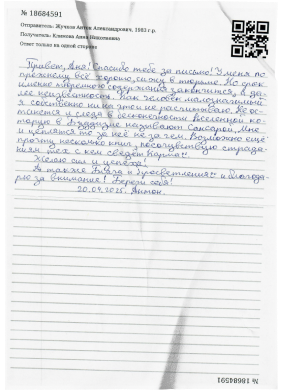 № 18684591
Отправитель: Жучков Антон Александрович, 1983 г.р.
Получатель: Климова Анна Николаевна
Ответ только на одной стороне
Привет, Аня! Спасибо тебе за письмо! У меня по-
прежнему всё хорошо, сижу в тюрьме. Но срок
именно тюремного содержания закончился, а да-
лее неизвестность. Как человек малозначимый
я собственно ни на что не рассчитываю. Не ос-
танется и следа в бесконечности Вселенной ко-
торую в буддизме называют Сансарой. Мне
и цепляться то за неё не за чем. Возможно ещё
прочту несколько книг, посочувствую страда-
ниям тех с кем сведёт карма!
Желаю сил и успеха!
А также Блага и Просветления! и благода-
рю за внимание! Береги себя!
20.04.2025. Антон.
№ 18684591